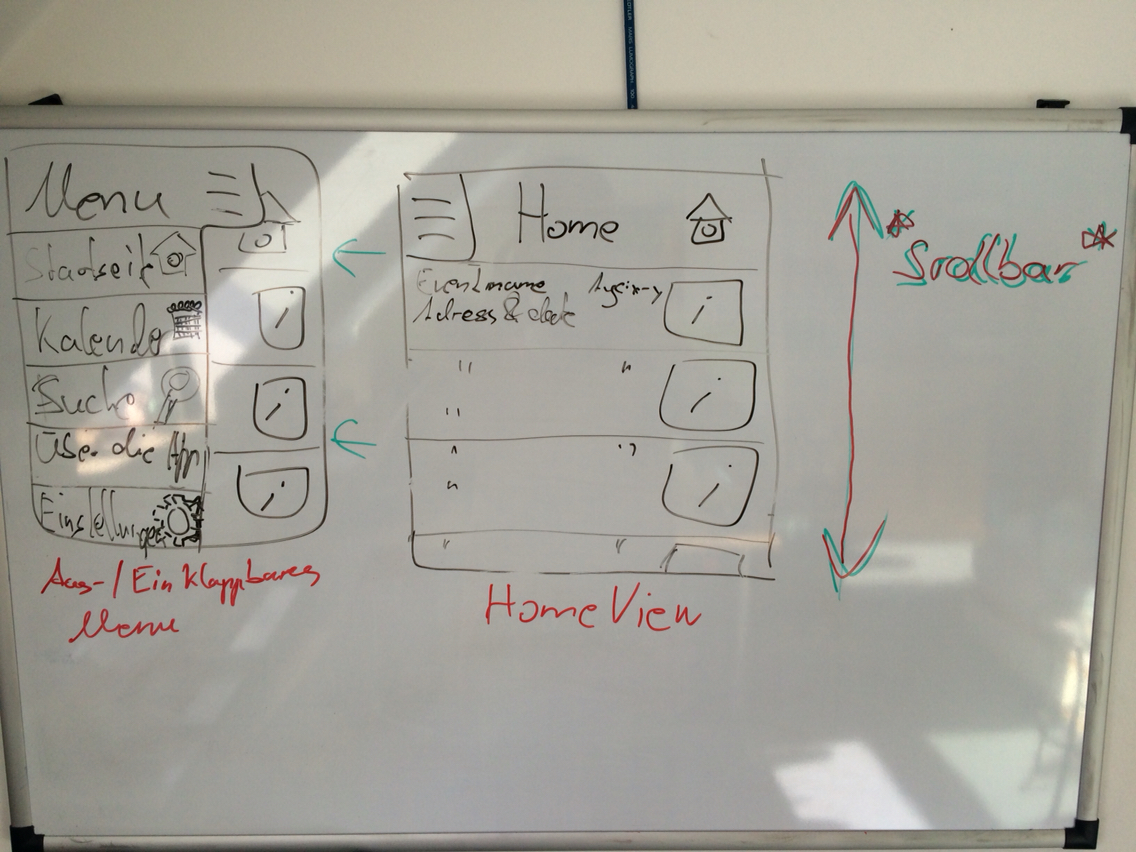 Menu
Startseite
Kalender
Suche
Über die App
Einstellungen
Aus-/Einklappbares
Menu
Home
Eventname
Adress & date
i
i
i
i
i
i
" "
"
" "
"
" "
HomeView
* Srollbar *